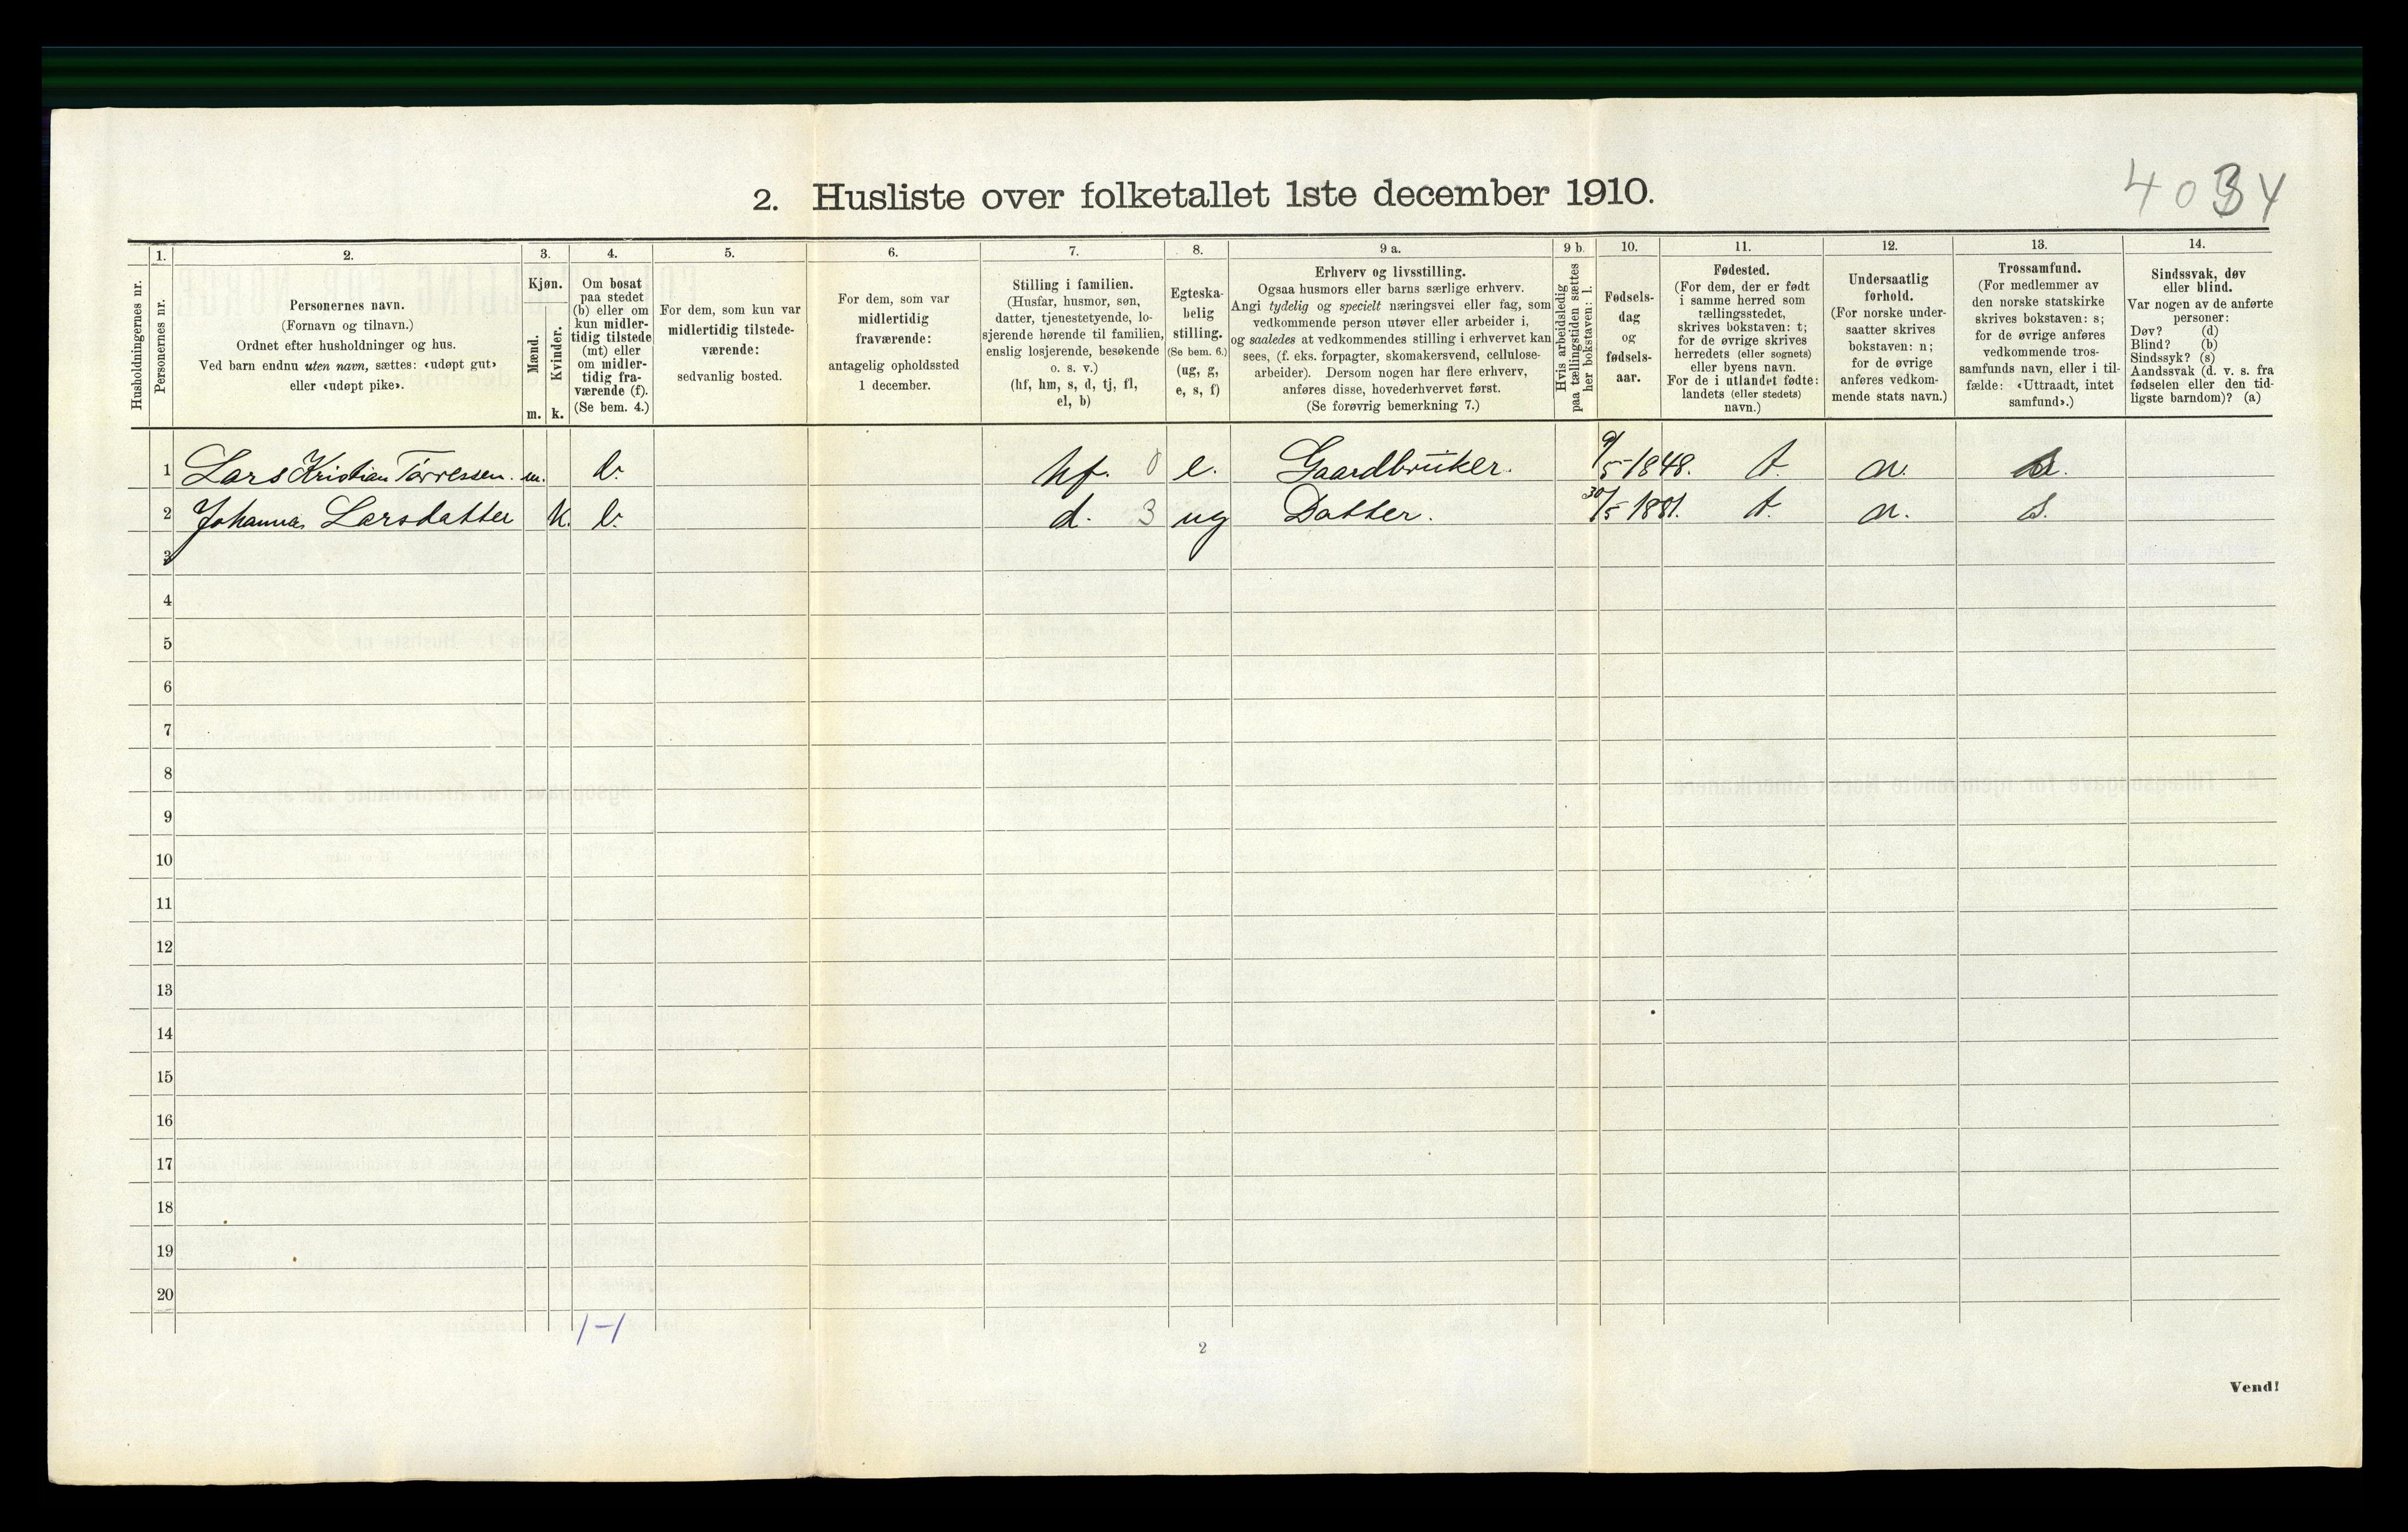 2. Husliste over folketallet 1ste december 1910.
1. 2. 3. 4. 5. 6. 7. 8. 9 a. 9 b. 10. 11. 12. 13. 14.
Husholdningernes nr.
Personernes nr.
Personernes navn.
(Fornavn og tilnavn.)
Ordnet efter husholdninger og hus.
Ved barn endnu uten navn, sættes: «udøpt gut»
eller «udøpt pike».
Kjøn.
Mænd.
Kvinder.
m. k.
Om bosat
paa stedet
(b) eller om
kun midler-
tidig tilstede
(mt) eller
om midler-
tidig fra-
værende (f).
(Se bem. 4.)
For dem, som kun var
midlertidig tilstede-
værende:
sedvanlig bosted.
For dem, som var
midlertidig
fraværende:
antagelig opholdssted
1 december.
Stilling i familien.
(Husfar, husmor, søn,
datter, tjenestetyende, lo-
sjerende hørende til familien,
enslig losjerende, besøkende
o. s. v.)
(hf, hm, s, d, tj, fl,
el, b)
Egteska-
belig
stilling.
(Se bem. 6.)
(ug, g,
e, s, f)
Erhverv og livsstilling.
Ogsaa husmors eller barns særlige erhverv.
Angi tydelig og specielt næringsvei eller fag, som
vedkommende person utøver eller arbeider i,
og saaledes at vedkommendes stilling i erhvervet kan
sees, (f. eks. forpagter, skomakersvend, cellulose-
arbeider). Dersom nogen har flere erhverv,
anføres disse, hovederhvervet først.
(Se forøvrig bemerkning 7.)
Hvis arbeidsledig
paa tællingstiden sættes
her bokstaven: l.
Fødsels-
dag
og
fødsels-
aar.
Fødested.
(For dem, der er født
i samme herred som
tællingsstedet,
skrives bokstaven: t;
for de øvrige skrives
herredets (eller sognets)
eller byens navn.
For de i utlandet fødte:
landets (eller stedets)
navn.)
Undersaatlig
forhold.
(For norske under-
saatter skrives
bokstaven: n;
for de øvrige
anføres vedkom-
mende stats navn.)
Trossamfund.
(For medlemmer av
den norske statskirke
skrives bokstaven: s;
for de øvrige anføres
vedkommende tros-
samfunds navn, eller i til-
fælde: «Uttraadt, intet
samfund».)
Sindssvak, døv
eller blind.
Var nogen av de anførte
personer:
Døv? (d)
Blind? (b)
Sindssyk? (s)
Aandssvak (d. v. s. fra
fødselen eller den tid-
ligste barndom)? (a)
1 Lars Kristian Tørressen. m. b. hf. 0 e. Gaardbruker. 9/5-1848. t. n. s.
2 Johanna Larsdatter K. b. d. 3 ug Datter. 30/5 1881. t. n. s.
3
4
5
6
7
8
9
10
11
12
13
14
15
16
17
18
19
20
1-1
2
Vend!